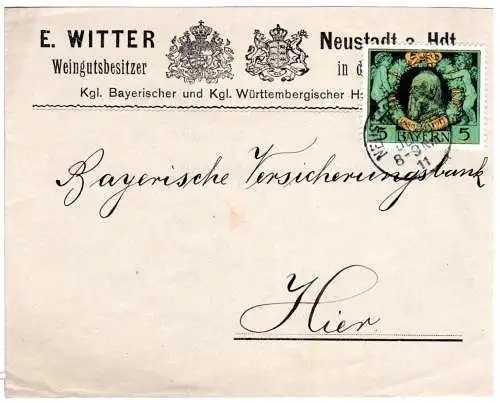 E. WITTER
Weingutsbesitzer
Neustadt a. Hdt.
in d
Kgl. Bayerischer und Kgl. Württembergischer H
5 BAYERN 5
NEUST
8-9
11
Bayerische Versicherungsbank
Hier.